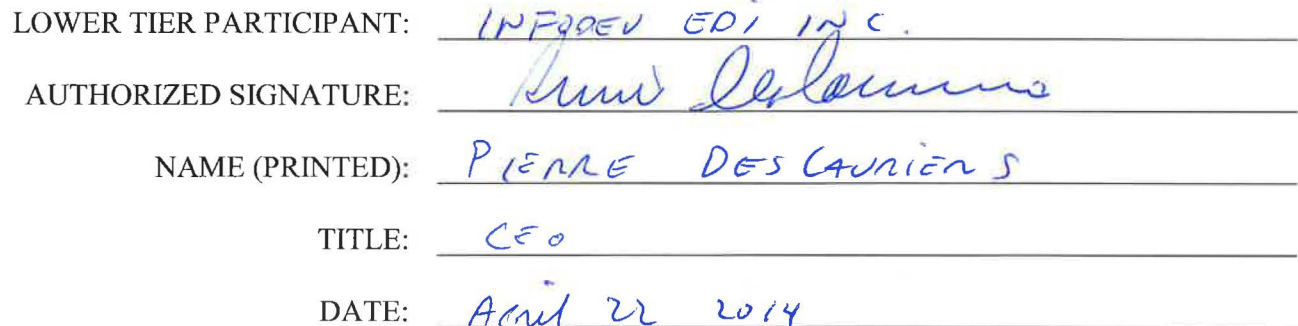 LOWER TIER PARTICIPANT: INFODEV EDI INC.
AUTHORIZED SIGNATURE:
NAME (PRINTED): PIERRE DESLAURIERS
TITLE: CEO
DATE: April 22 2014